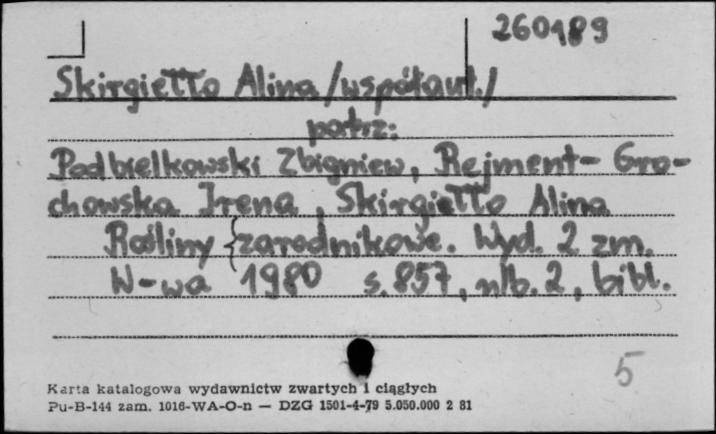 260189
Skirgiełło Alina /współaut./
patrz:
Podbielkowski Zbigniew, Rejment-Gro-
chowska Irena, Skirgiełło Alina
Rośliny {zarodnikowe. Wyd. 2 zm.
W-wa 1980 s. 857, nlb. 2, bibl.
5
Karta katalogowa wydawnictw zwartych i ciągłych
Pu-B-144 zam. 1016-WA-O-n — DZG 1501-4-79 5.050.000 2 81